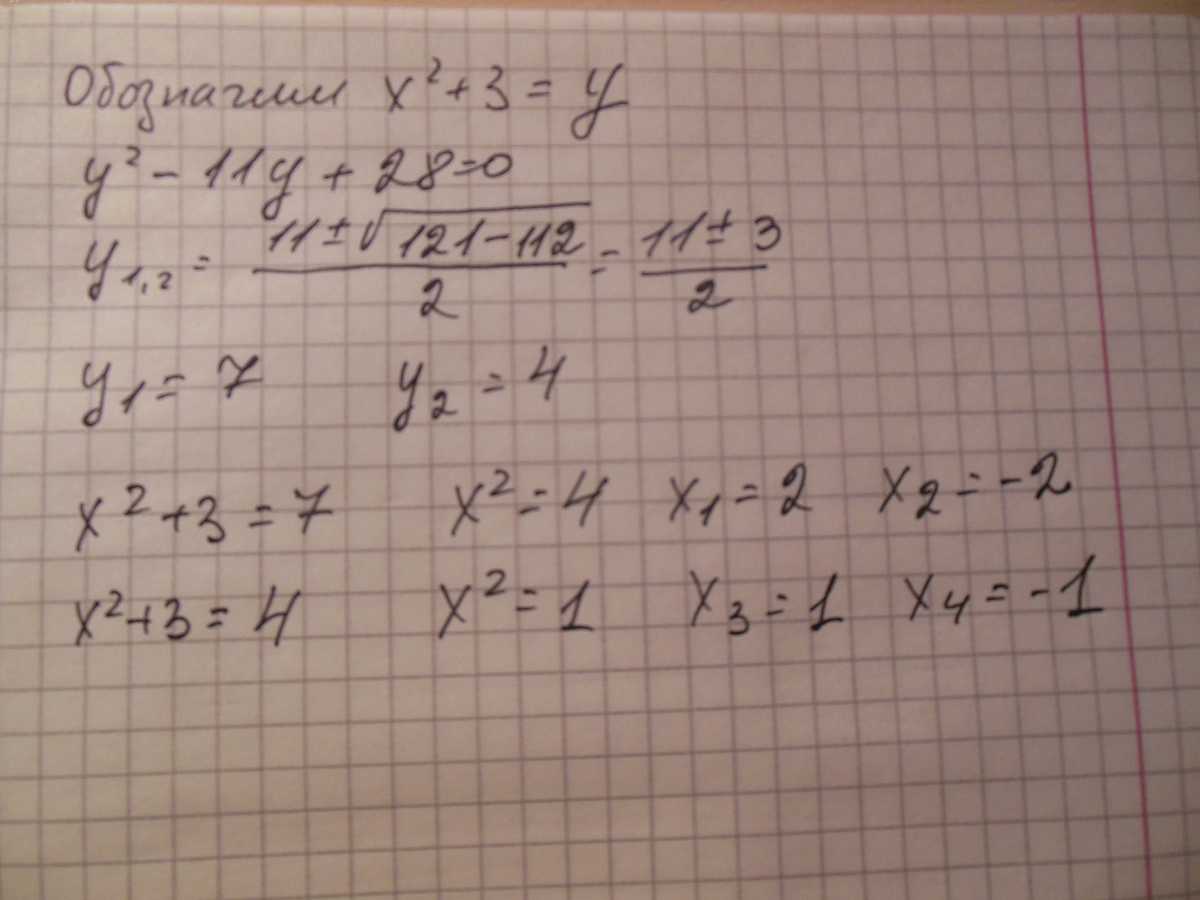 Обозначим x² + 3 = y
y² - 11y + 28 = 0
y₁,₂ = (11 ± √(121 - 112))/2 = (11 ± 3)/2
y₁ = 7 y₂ = 4
x² + 3 = 7 x² = 4 x₁ = 2 x₂ = -2
x² + 3 = 4 x² = 1 x₃ = 1 x₄ = -1